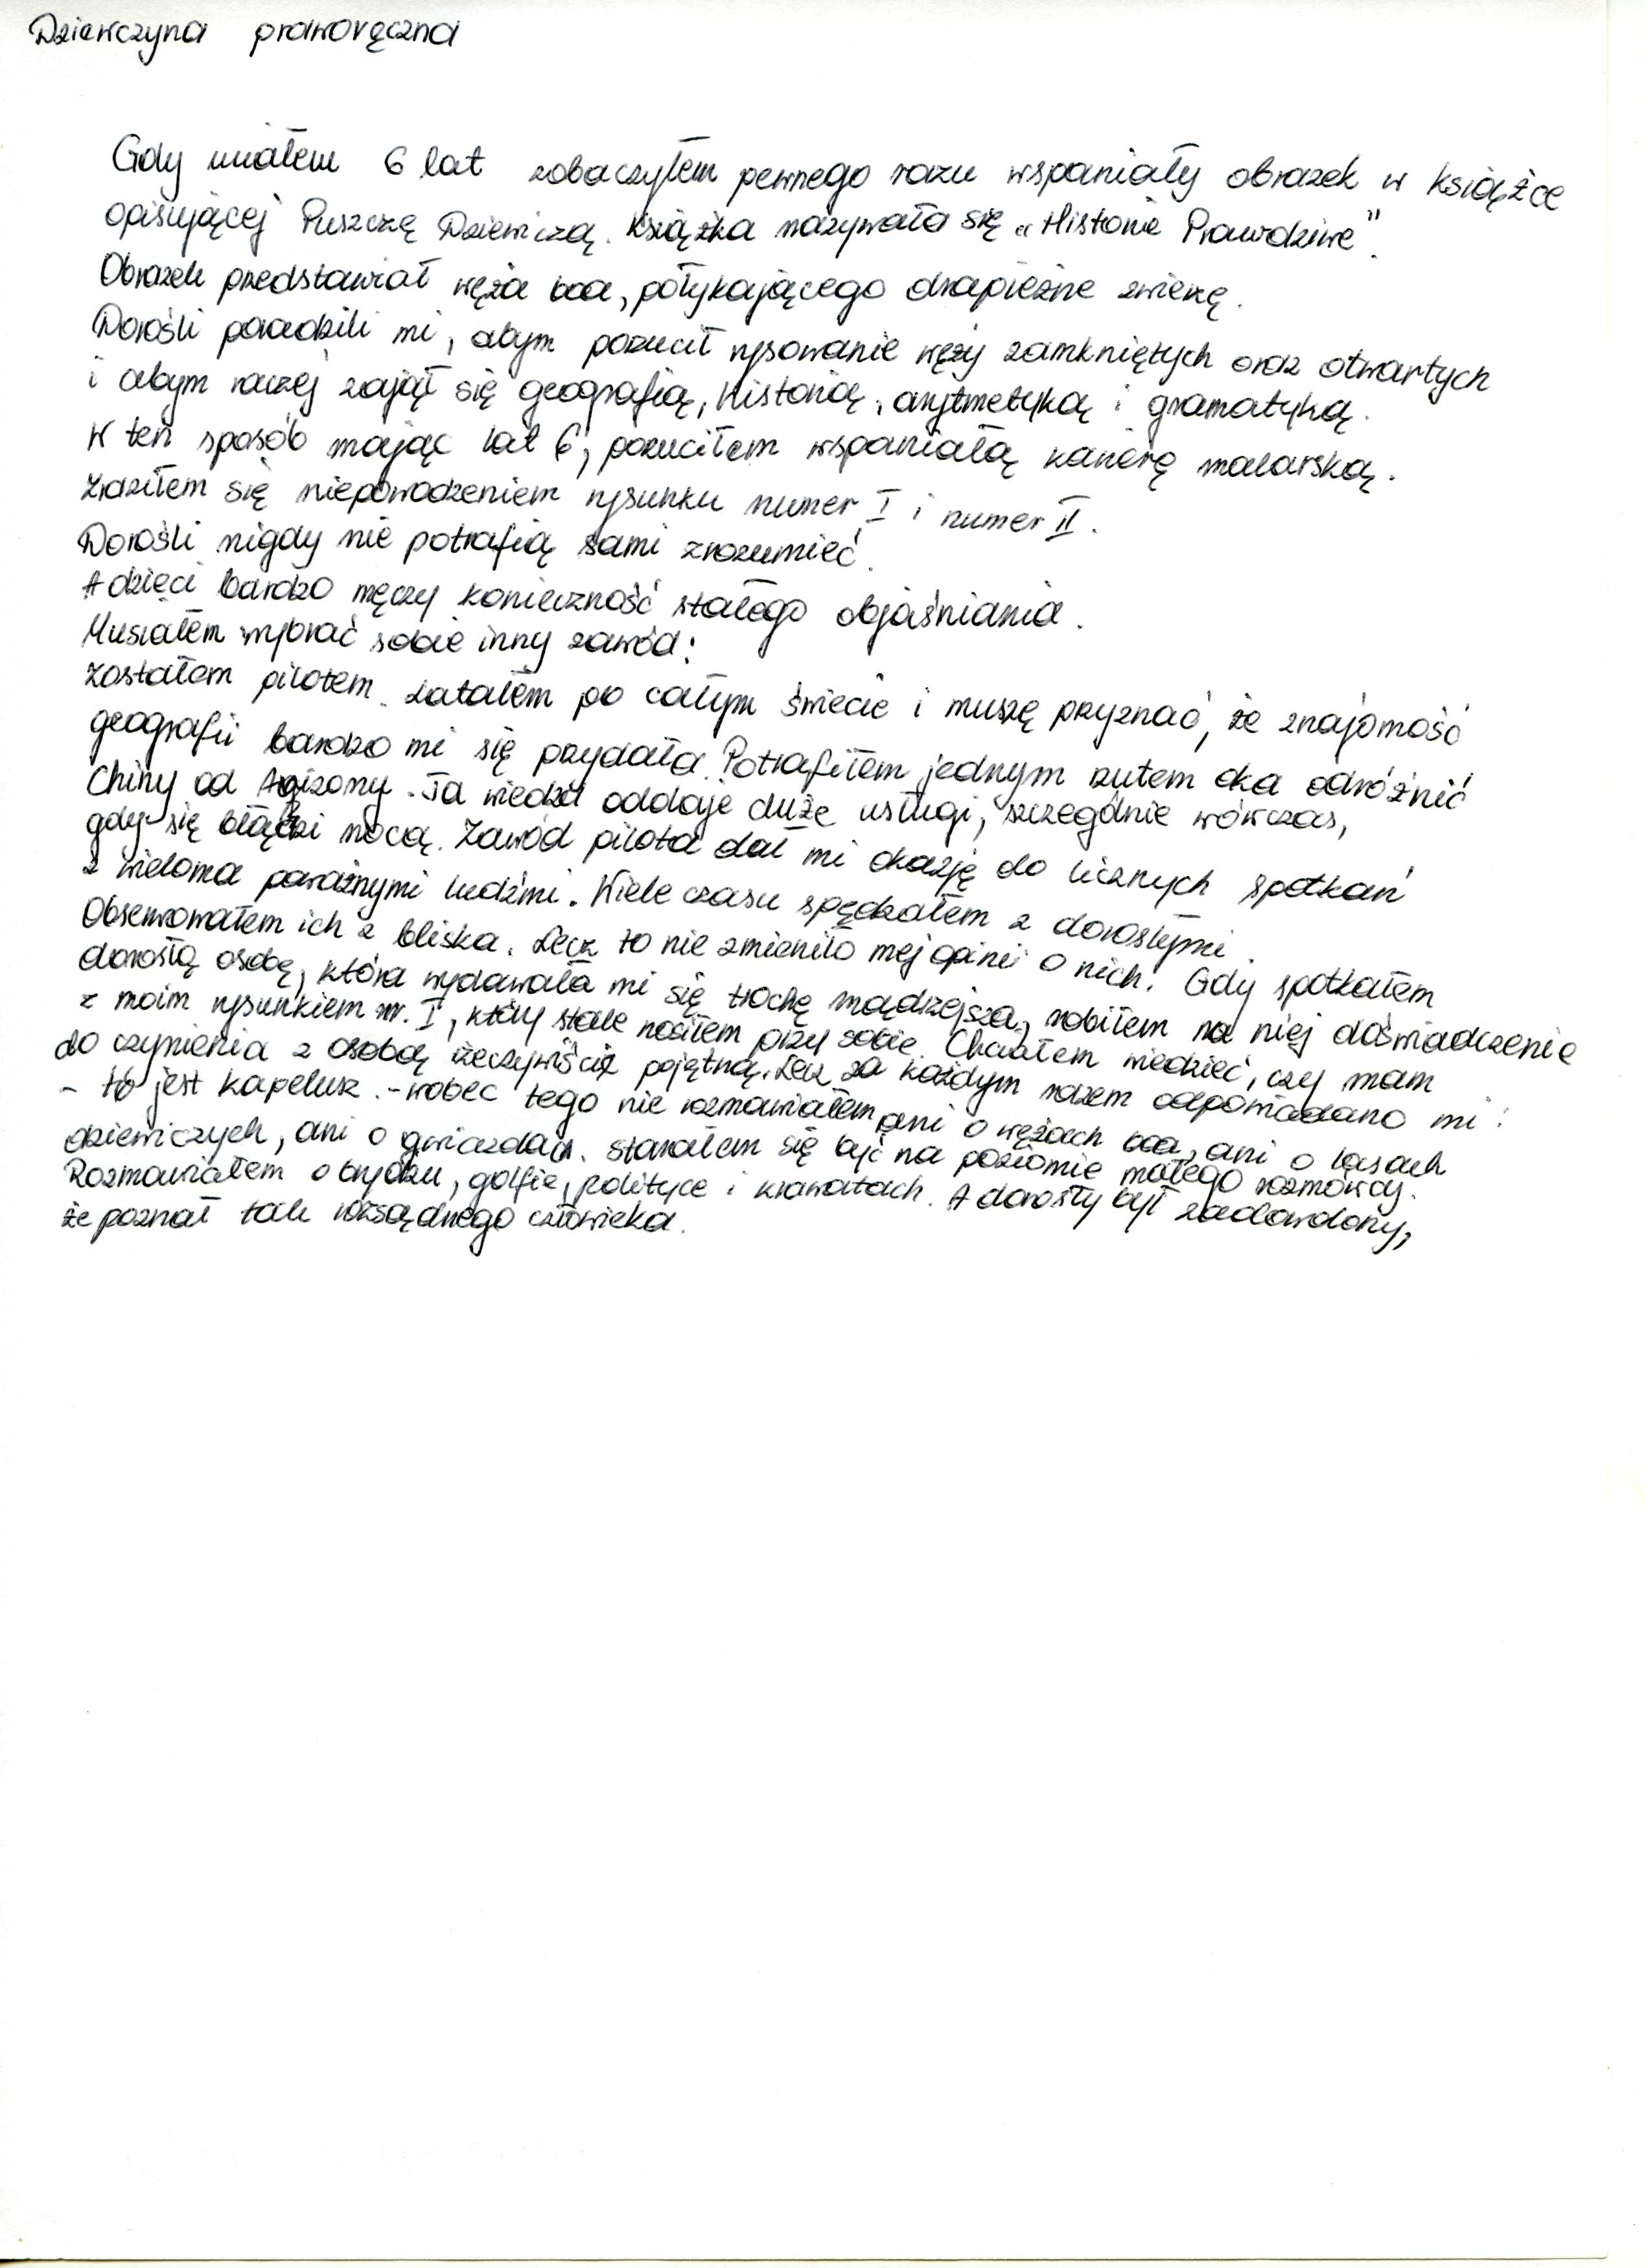 Dziewczyna praworęczna
Gdy miałem 6 lat zobaczyłem pewnego razu wspaniały obrazek w książce
opisującej Puszczę Dziewiczą. Książka nazywała się „Historie Prawdziwe".
Obrazek przedstawiał węża boa, połykającego drapieżne zwierzę.
Dorośli poradzili mi, abym porzucił rysowanie węży zamkniętych oraz otwartych
i abym raczej zajął się geografią, historią, arytmetyką i gramatyką.
W ten sposób mając lat 6, porzuciłem wspaniałą karierę malarską.
Zraziłem się niepowodzeniem rysunku numer I i numer II.
Dorośli nigdy nie potrafią sami zrozumieć.
A dzieci bardzo męczy konieczność stałego objaśniania.
Musiałem wybrać sobie inny zawód:
zostałem pilotem. Latałem po całym świecie i muszę przyznać, że znajomość
geografii bardzo mi się przydała. Potrafiłem jednym rzutem oka odróżnić
Chiny od Arizony. Ta wiedza oddaje duże usługi, szczególnie wówczas,
gdy się błądzi nocą. Zawód pilota dał mi okazję do licznych spotkań
z wieloma poważnymi ludźmi. Wiele czasu spędzałem z dorosłymi.
Obserwowałem ich z bliska. Lecz to nie zmieniło mej opinii o nich. Gdy spotkałem
dorosłą osobę, która wydawała mi się trochę mądrzejsza, robiłem na niej doświadczenie
z moim rysunkiem nr. I, który stale nosiłem przy sobie. Chciałem wiedzieć, czy mam
do czynienia z osobą rzeczywiście pojętną. Lecz za każdym razem odpowiadano mi:
- to jest kapelusz. - wobec tego nie rozmawiałem ani o wężach boa, ani o lasach
dziewiczych, ani o gwiazdach. Starałem się być na poziomie małego rozmówcy.
Rozmawiałem o brydżu, golfie, polityce i krawatach. A dorosły był zadowolony,
że poznał tak rozsądnego człowieka.